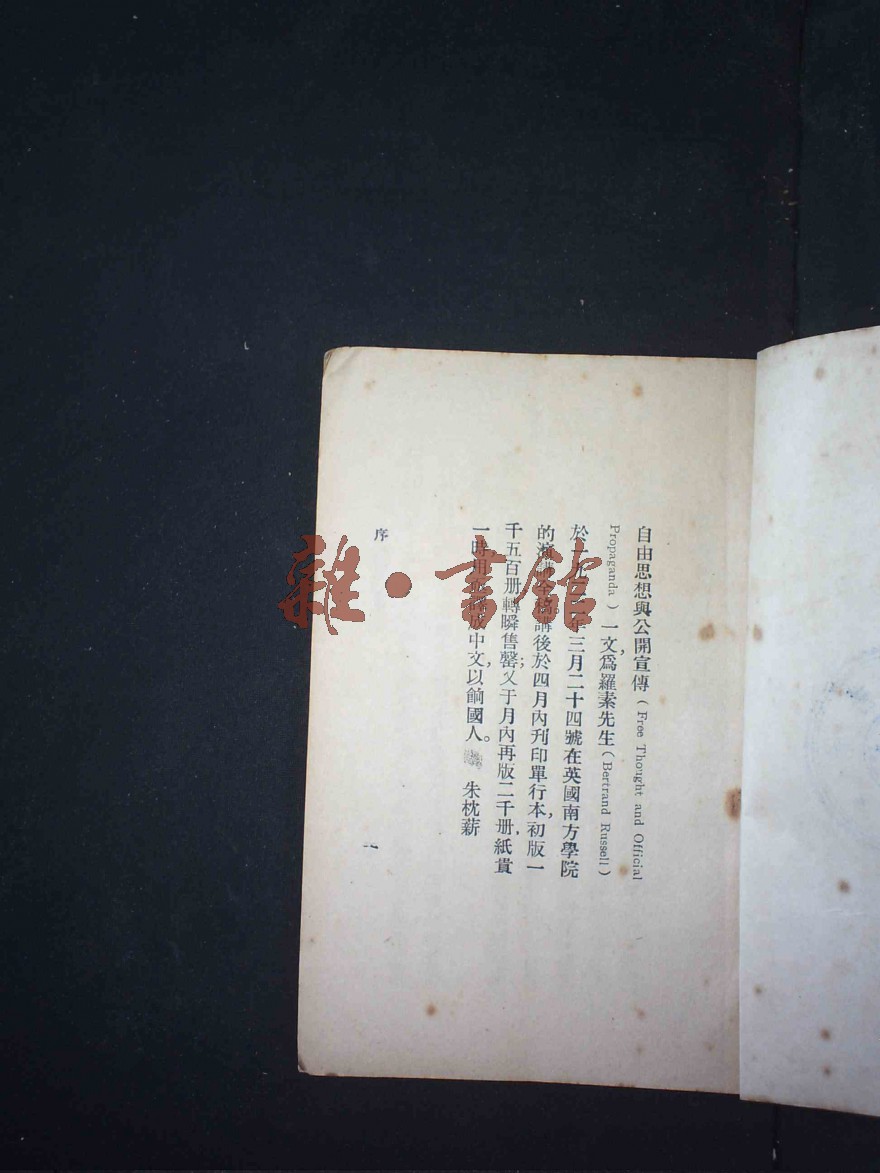 自由思想與公開宣傳(Free Thought and Official
Propaganda)一文,爲羅素先生(Bertrand Russell)
於一九二二年三月二十四號在英國南方學院
的演講全稿。講後於四月內刊印單行本,初版一
千五百册轉瞬售罄;乂于月內再版二千册,紙貴
一時。用成中文,以餉國人。
朱枕薪
序
一
雜·書館